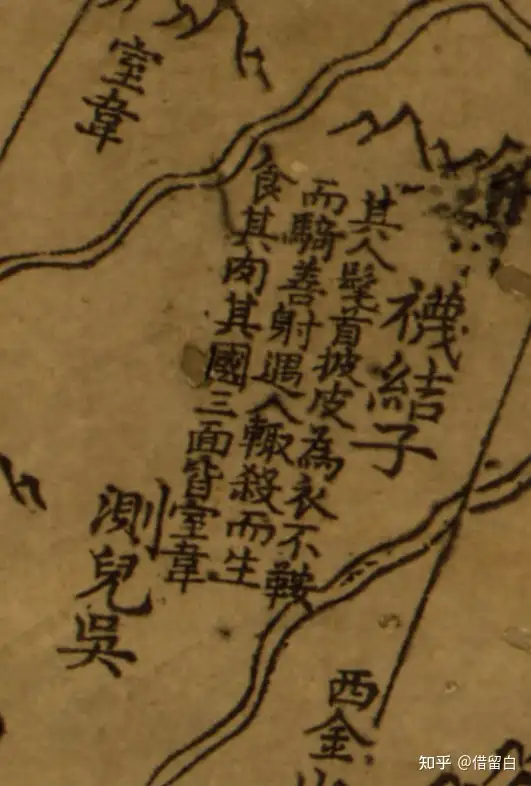 室韋
襪結子
其人髠首披皮為衣不鞍
而騎善射遇人輒殺而生
食其肉其國三面皆室韋
測兒吳
西金
知乎 @借留白